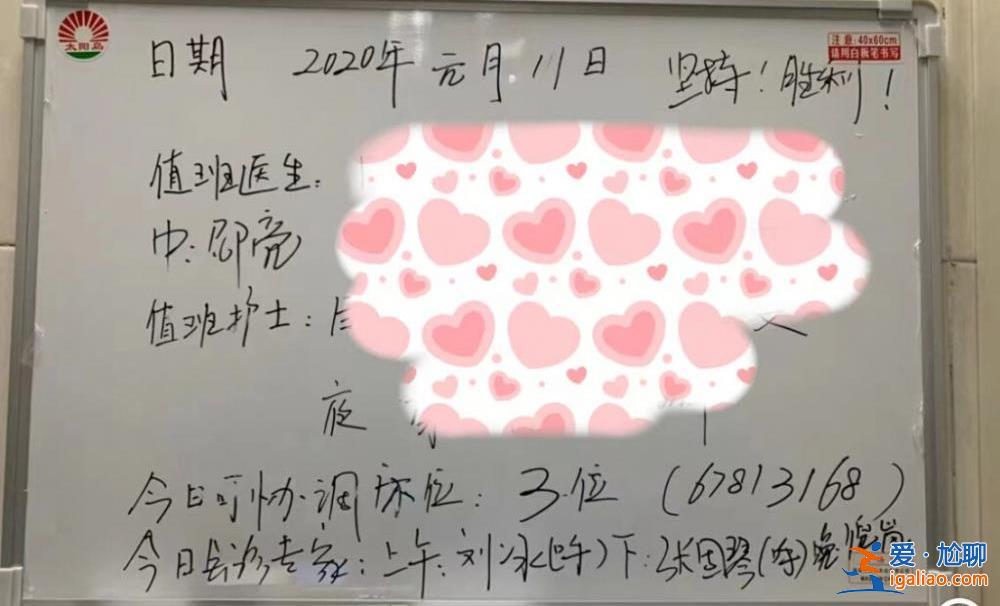 太阳岛
注意:40x60cm
请用白板笔书写
日期 2020年元月11日 坚持!胜利!
值班医生:
中:邵亮
值班护士:
夜
今日可协调床位:3位 (67813168)
今日会诊专家:上午:刘冰(呼) 下:张国琴
爱·尬聊
igaliao.com